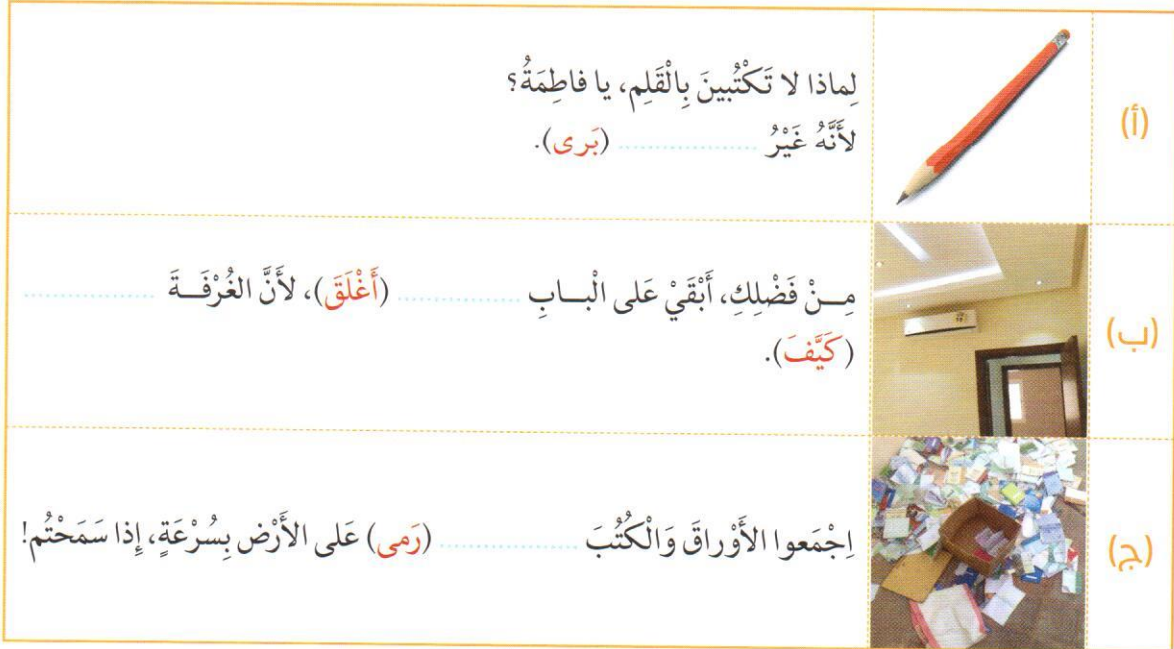 (أ)
لِماذا لا تَكْتُبينَ بِالْقَلِم، يا فاطِمَةُ؟
لأَنَّهُ غَيْرُ .................. (بَرى).
(ب)
مِـنْ فَضْلِكِ، أَبْقَيْ عَلى الْبـابِ .................. (أَغْلَقَ)، لأَنَّ الغُرْفَـةَ ..................
(كَيَّفَ).
(ج)
اِجْمَعوا الأَوْراقَ وَالْكُتُبَ .................. (رَمى) عَلى الأَرْض بِسُرْعَةٍ، إِذا سَمَحْتُم!